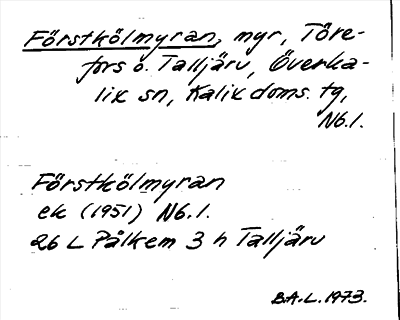 Förstkölmyran, myr, Töre-
fors o. Talljärv, Överka-
lix sn, Kalix doms. tg,
Nb.l.
Förstkölmyran
ek (1951) Nb.l.
26 L Pålkem 3 h Talljärv
B.A-L. 1973.